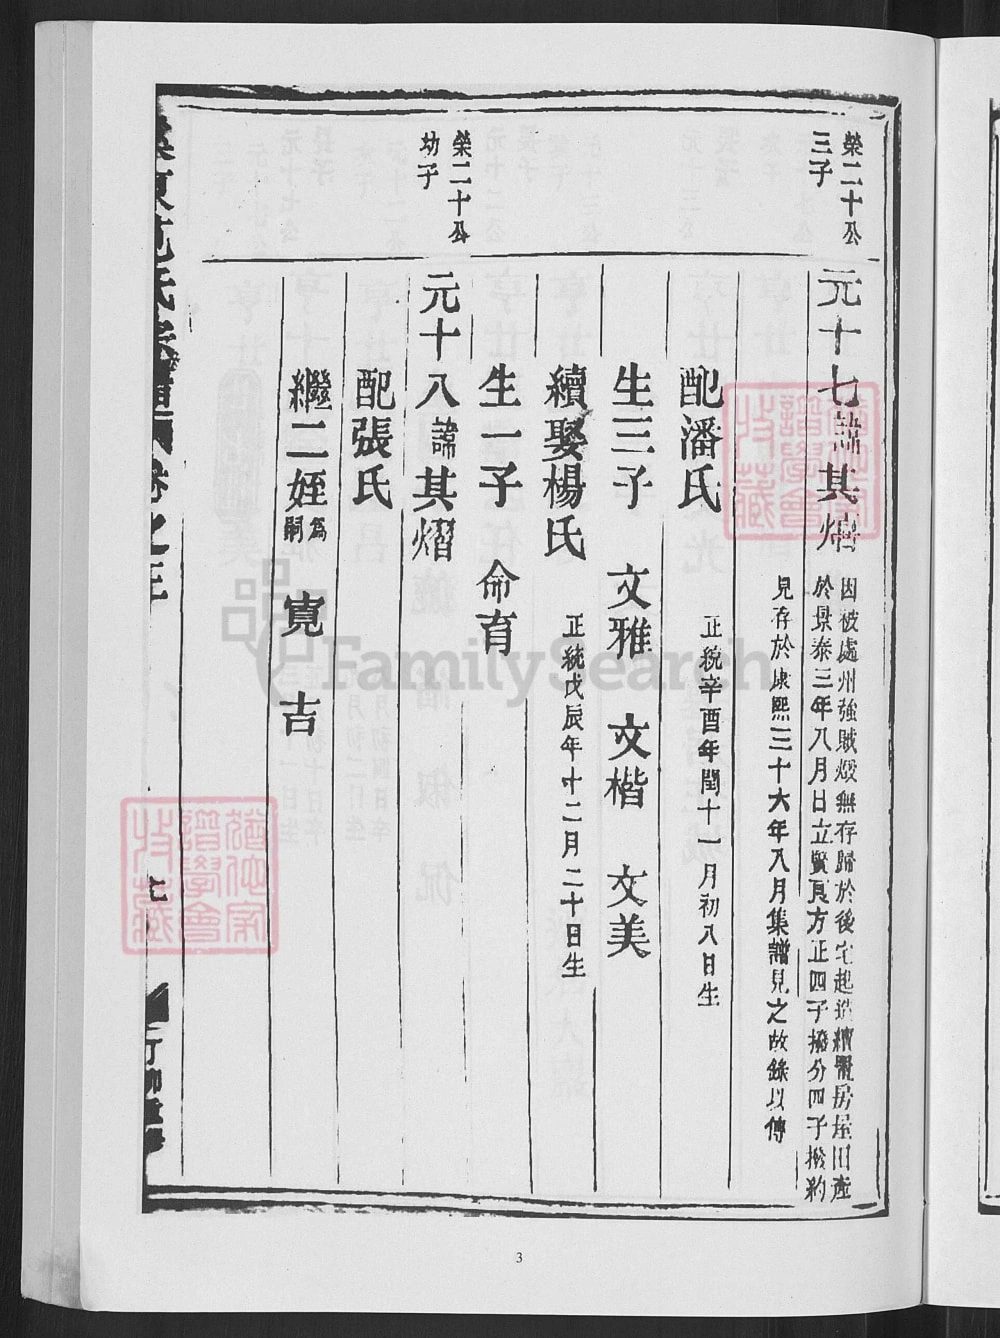 榮二十公
三子
元十七諱其熠
因被處州強賊燬無存歸於後宅起造續置房屋田產
於景泰三年八月日立賢良方正四子撥分四子撥約
見存於康熙三十六年八月集譜見之故錄以傳
配潘氏
正統辛酉年閏十一月初八日生
生三子 文雅 文楷 文美
續娶楊氏
正統戊辰年十二月二十日生
生一子 命育
榮二十公
幼子
元十八諱其熠
配張氏
繼二姪為嗣 寬 吉
范氏宗譜 卷之三
七
3
FamilySearch
譜學會
收藏
譜學會
收藏